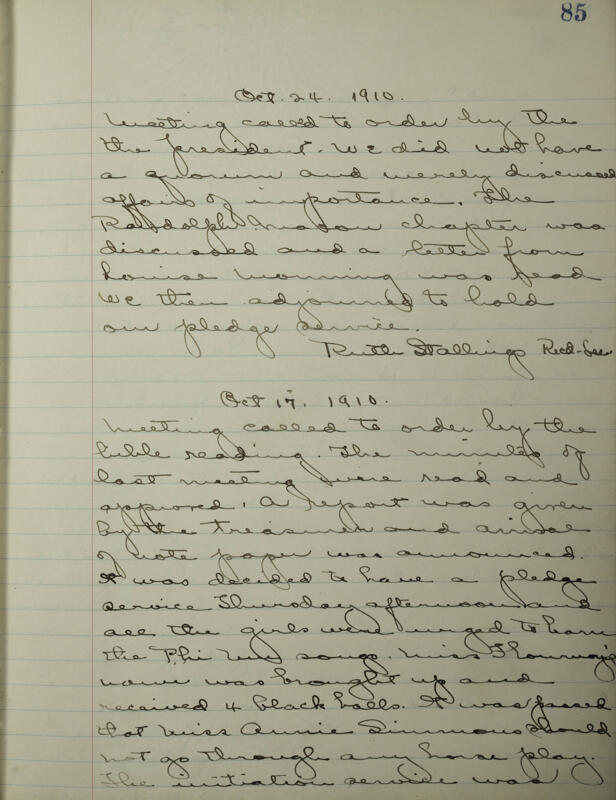 85
Oct. 24. 1910.
Meeting called to order by the
the president. We did not have
a quorum and merely discussed
affairs of importance. The
Randolph Macon chapter was
discussed and a letter from
Louise Monning was read
We then adjourned to hold
our pledge service.
Ruth Stallings Recd-Sec.
Oct 17. 1910.
Meeting called to order by the
bible reading. The minutes of
last meeting were read and
approved. A report was given
by the Treasurer and
of note paper was announced.
It was decided to have a pledge
service Thursday afternoon and
all the girls were urged to learn
the Phi Mu songs. Miss
name was brought up and
received 4 black balls. It was passed
that Miss Annie Simmons should
not go through any horse play.
The initiation service was